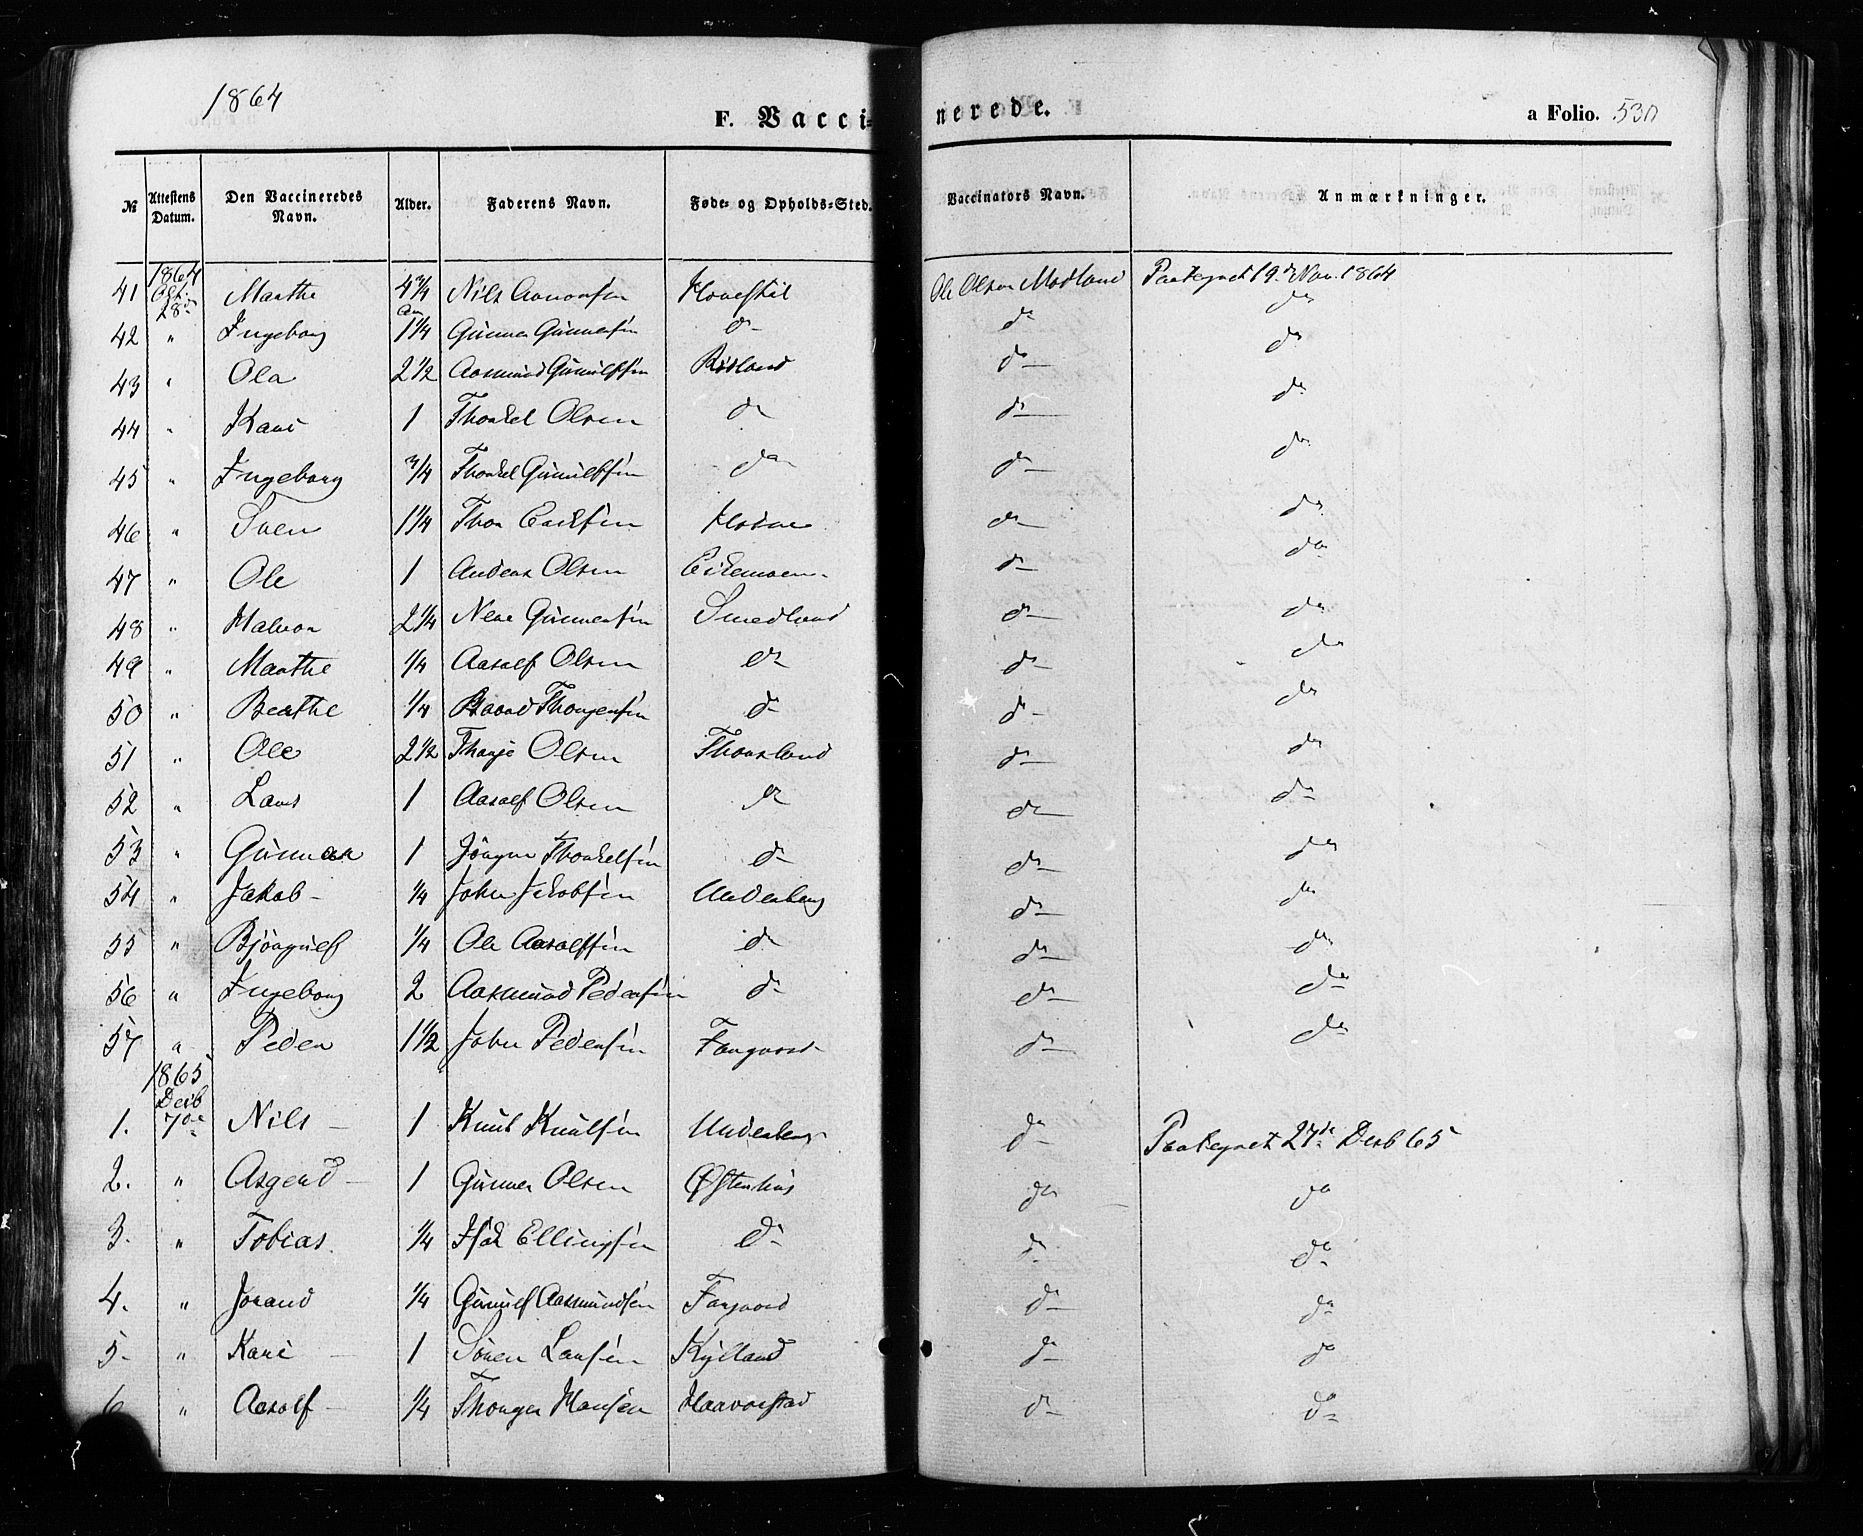 1864
F. Vaccinerede.
a Folio. 530
№ | Attestens Datum. | Den Vaccineredes Navn. | Alder. | Faderens Navn. | Føde- og Opholds-Sted. | Vaccinators Navn. | Anmærkninger.
41 | 1864 Okt. 28de | Marthe | 4 3/4 Aar | Nils | Hovestøl | Ole Olsen Modland | Paategnet 19de Nov. 1864
42 | " | Ingeborg | 1 1/4 | Gunner Gunnersen | do | do | do
43 | " | Ola | 2 1/2 | Aasmund Gunulfsen | Røsland | do | do
44 | " | Kari | 1 | Thorkel Olsen | do | do | do
45 | " | Ingeborg | 3/4 | Thorkel Gunulfsen | do | do | do
46 | " | Sven | 1 1/4 | Thor | | do | do
47 | " | Ole | 1 | Anders Olsen | Eikemoen | do | do
48 | " | Halvor | 2 1/4 | Gunnersen | Smedland | do | do
49 | " | Marthe | 1/4 | Aasolf Olsen | do | do | do
50 | " | Berthe | 1/4 | Baard Thorgersen | do | do | do
51 | " | Ole | 2 1/2 | Thorje Olsen | Thorsland | do | do
52 | " | Lars | 1 | Aasolf Olsen | do | do | do
53 | " | Gunnar | 1 | Jörgen Thorkelsen | do | do | do
54 | " | Jakob - | 1/4 | John Jakobsen | Underberg | do | do
55 | " | Bjørgulf | 1/4 | Ole Aasolfsen | do | do | do
56 | " | Ingeborg | 2 | Aasmund Pedersen | do | do | do
57 | " | Peder | 1 1/2 | John Pedersen | Fangvold | do | do
1. | 1865 Decb 7de | Nils - | 1 | Knut Knutsen | Underberg | do | Paategnet 27de Decb 65
2. | " | Asgerd - | 1 | Gunner Olsen | Øftenhus | do | do
3. | " | Tobias. | 1/4 | Isak Ellingsen | do | do | do
4. | " | Jorand | 1/4 | Gunulf Aasmundsen | Fangvold | do | do
5. | " | Kari - | 1 | Sören Larsen | Kylland | do | do
6 | " | Aasolf - | 1/4 | Thorger Hansen | Haavorstad | do | do